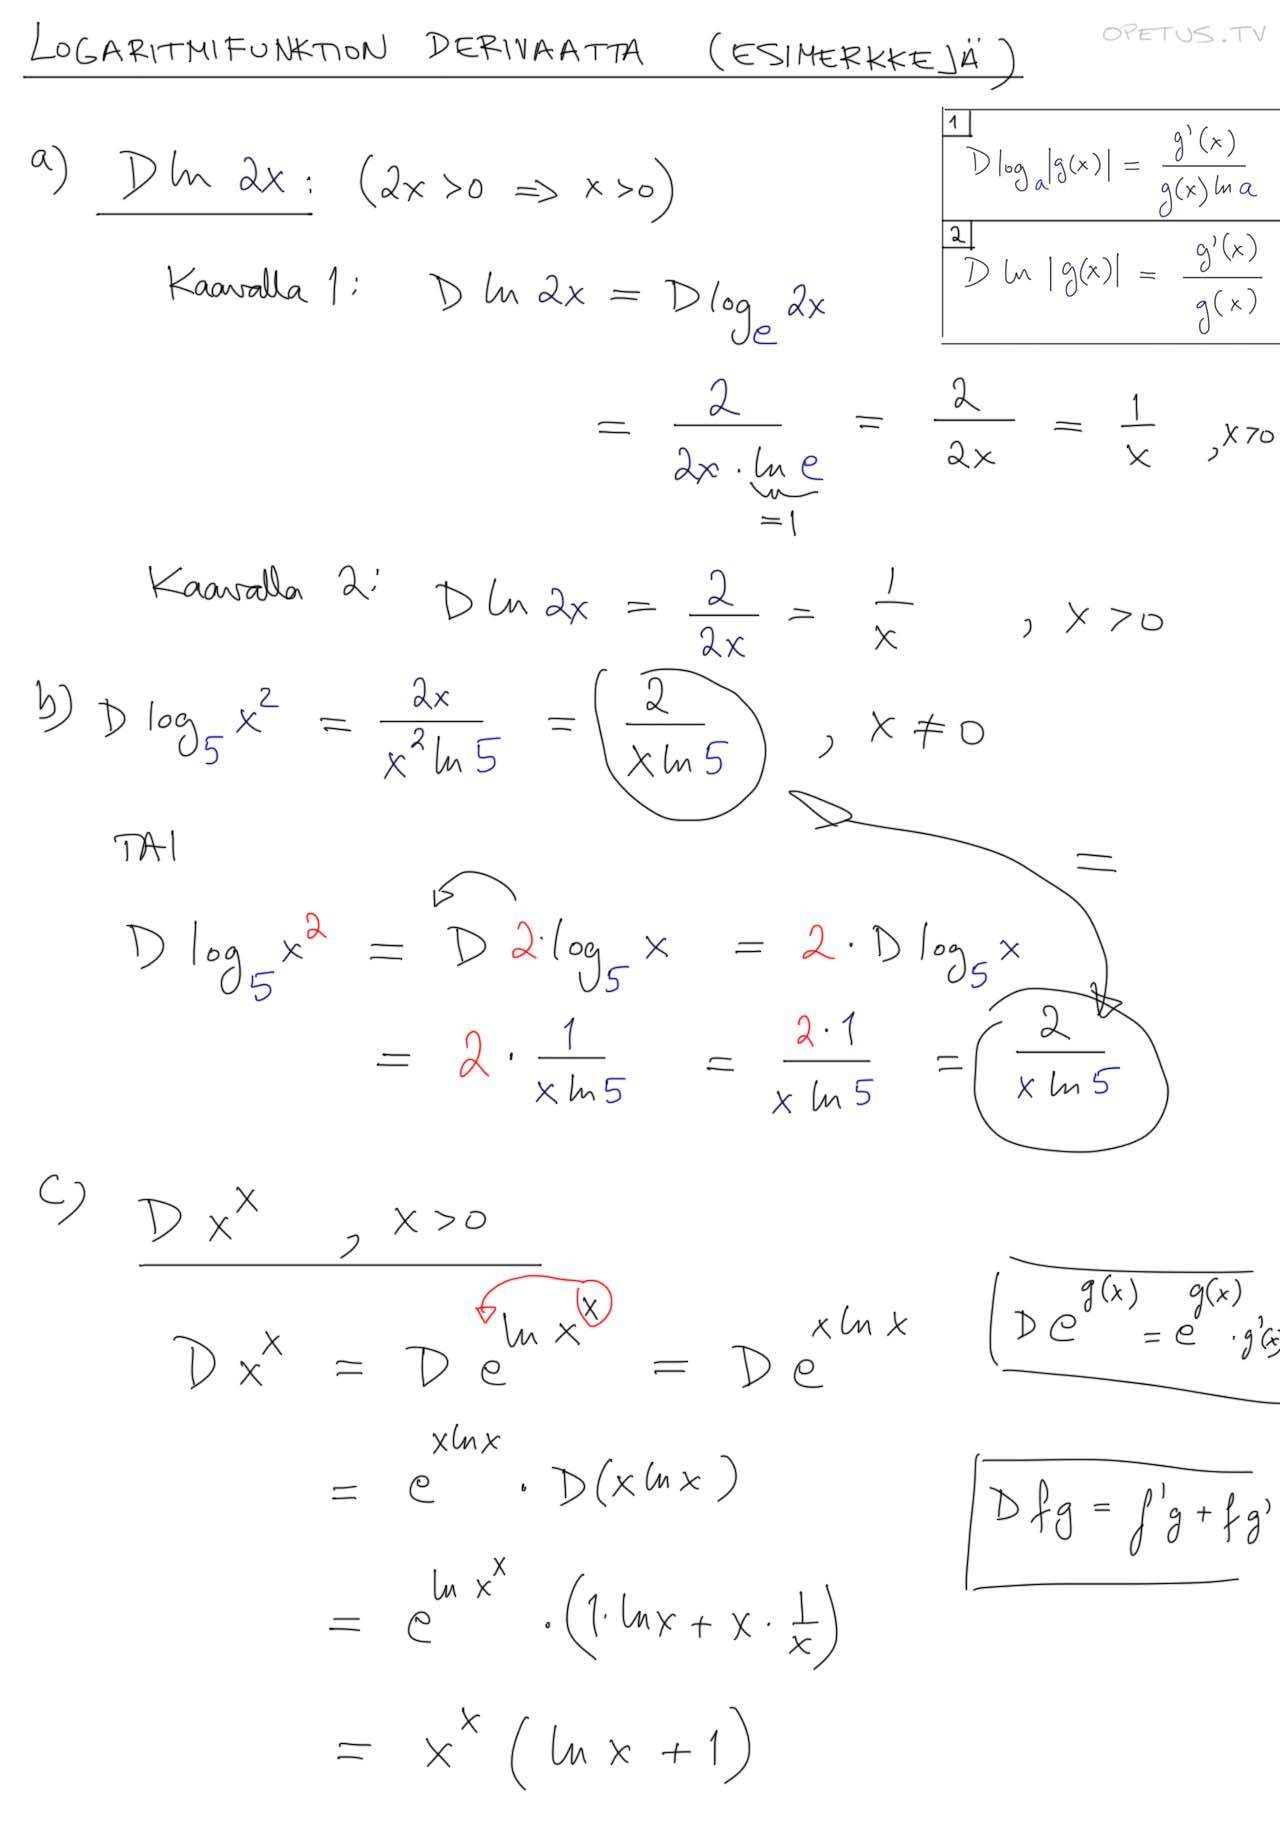 LOGARITMIFUNKTION DERIVAATTA (ESIMERKKEJÄ)
OPETUS.TV
1
D logₐ|g(x)| = g'(x) / (g(x) ln a)
2
D ln |g(x)| = g'(x) / g(x)
a) D ln 2x : (2x > 0 ⇒ x > 0)
Kaavalla 1: D ln 2x = D log_e 2x
= 2 / (2x · ln e) = 2 / 2x = 1 / x , x > 0
= 1
Kaavalla 2: D ln 2x = 2 / 2x = 1 / x , x > 0
b) D log₅ x² = 2x / (x² ln 5) = 2 / (x ln 5) , x ≠ 0
TAI
=
D log₅ x² = D 2 · log₅ x = 2 · D log₅ x
= 2 · 1 / (x ln 5) = 2 · 1 / (x ln 5) = 2 / (x ln 5)
c) D x^x , x > 0
D x^x = D e^(ln x^x) = D e^(x ln x)
D e^(g(x)) = e^(g(x)) · g'(x)
= e^(x ln x) · D(x ln x)
D fg = f'g + fg'
= e^(ln x^x) · (1 · ln x + x · 1/x)
= x^x (ln x + 1)